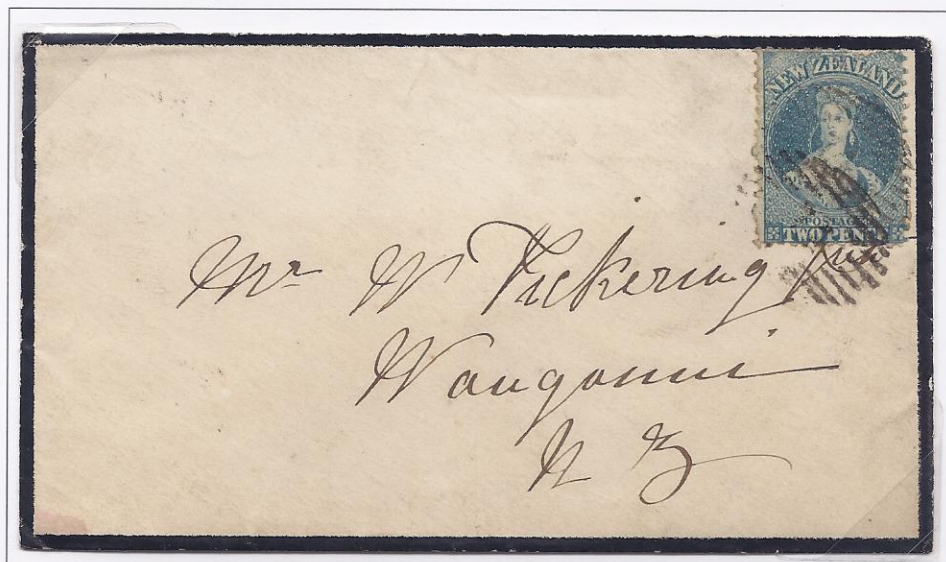 NEW ZEALAND
POSTAGE
TWO PENCE
Mr W Pickering Jun
Wanganui
N Z